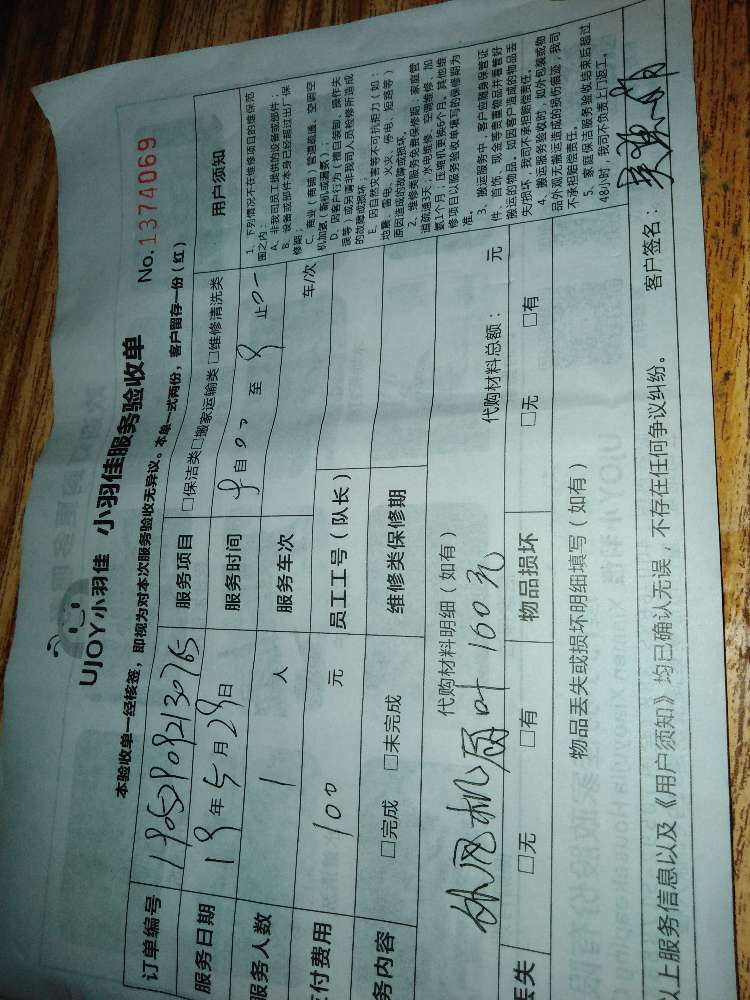 UJOY小羽佳 小羽佳服务验收单
No.1374069
本验收单一经核签，即视为对本次服务验收无异议。本单一式两份，客户留存一份（红）
订单编号 服务项目 □保洁类□搬家运输类□维修清洗类
服务日期 19年5月29日 服务时间 自 至 止
服务人数 1 人 服务车次 车/次
付费用 100 元 员工工号（队长）
务内容 □完成 □未完成 维修类保修期
代购材料明细（如有）
外风机扇叶 160元 代购材料总额： 元
丢失 □无 □有 物品损坏 □无 □有
物品丢失或损坏明细填写（如有）
用户须知
1、下列情况不在维修项目的维保范
围之内：
A、非我司员工提供的设备或部件；
B、设备或部件本身已经超过出厂保
修期；
C、商业（商铺）管道疏通、空调空
机加氨、新机或漏氨）；
D、因客户行为（擅自装卸、操作失
误等）或另请非我司人员检修所造成
的故障或损坏；
E、因自然灾害等不可抗拒力（如：
地震、雷电、火灾、停电、短路等）
原因造成的故障或损坏。
2、维修类服务免费保修期：家庭管
道疏通3天；水电维修、空调维修、加
氨1个月；压缩机更换6个月。其他维
修项目以服务验收单填写的保修期为
准。
3、搬运服务中，客户应随身保管证
件、首饰、现金等贵重物品并看管好
搬运的物品。如因客户造成的物品丢
失/损坏，我司不承担赔偿责任。
4、搬运服务验收时，如外包装或物
品外观无搬运造成的损伤痕迹，我司
不承担赔偿责任。
5、家庭保洁服务验收结束后超过
48小时，我司不负责上门返工。
以上服务信息以及《用户须知》均已确认无误，不存在任何争议纠纷。 客户签名：